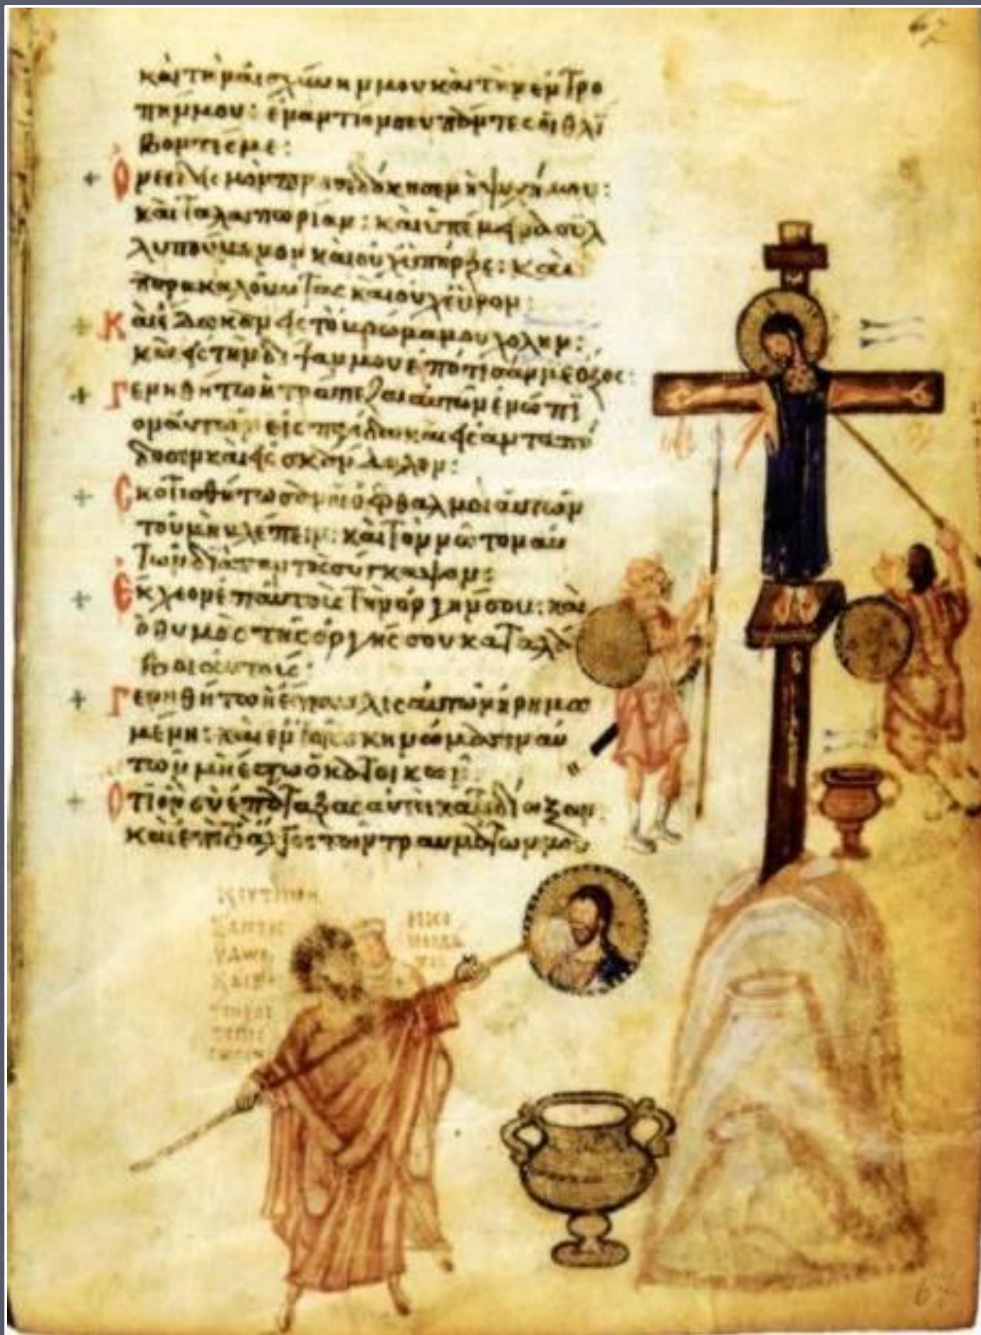 67
καὶ τὴν αἰσχύνην μου καὶ τὴν ἐντρο
πήν μου: ἐναντίον σου πάντες οἱ θλί
βοντές με:
+ Ὀνειδισμὸν προσεδόκησεν ἡ ψυχή μου:
καὶ ταλαιπωρίαν: καὶ ὑπέμεινα συλ
λυπούμενον καὶ οὐχ ὑπῆρξε: καὶ
παρακαλοῦντας καὶ οὐχ εὗρον:
+ Καὶ ἔδωκαν εἰς τὸ βρῶμά μου χολήν:
καὶ εἰς τὴν δίψαν μου ἐπότισάν με ὄξος:
+ Γενηθήτω ἡ τράπεζα αὐτῶν ἐνώπι
ον αὐτῶν εἰς παγίδα καὶ εἰς ἀνταπό
δοσιν καὶ εἰς σκάνδαλον:
+ Σκοτισθήτωσαν οἱ ὀφθαλμοὶ αὐτῶν
τοῦ μὴ βλέπειν: καὶ τὸν νῶτον αὐ
τῶν διὰ παντὸς σύγκαμψον:
+ Ἔκχεον ἐπ αὐτοὺς τὴν ὀργήν σου: καὶ
ὁ θυμὸς τῆς ὀργῆς σου καταλά
βοι αὐτούς:
+ Γενηθήτω ἡ ἔπαυλις αὐτῶν ἠρημω
μένη: καὶ ἐν τοῖς σκηνώμασιν αὐ
τῶν μὴ ἔστω ὁ κατοικῶν:
+ Ὅτι ὃν σὺ ἐπάταξας αὐτοὶ κατεδίωξαν:
καὶ ἐπὶ τὸ ἄλγος τῶν τραυμάτων μου
67